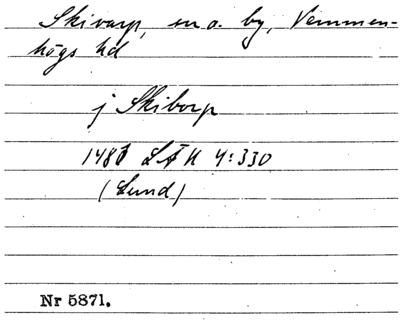 Skivarp, sn o. by, Vemmen-
högs hd
j Skiborp
1481 LÄU 4:330
(Lund)
Nr 5871.